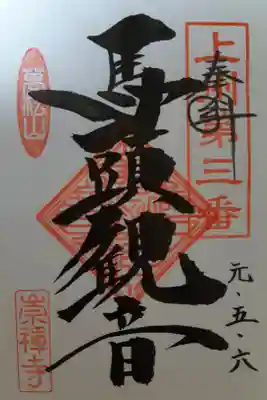 奉拝
上州第三番
馬頭観音
高松山
元・五・六
崇禅寺